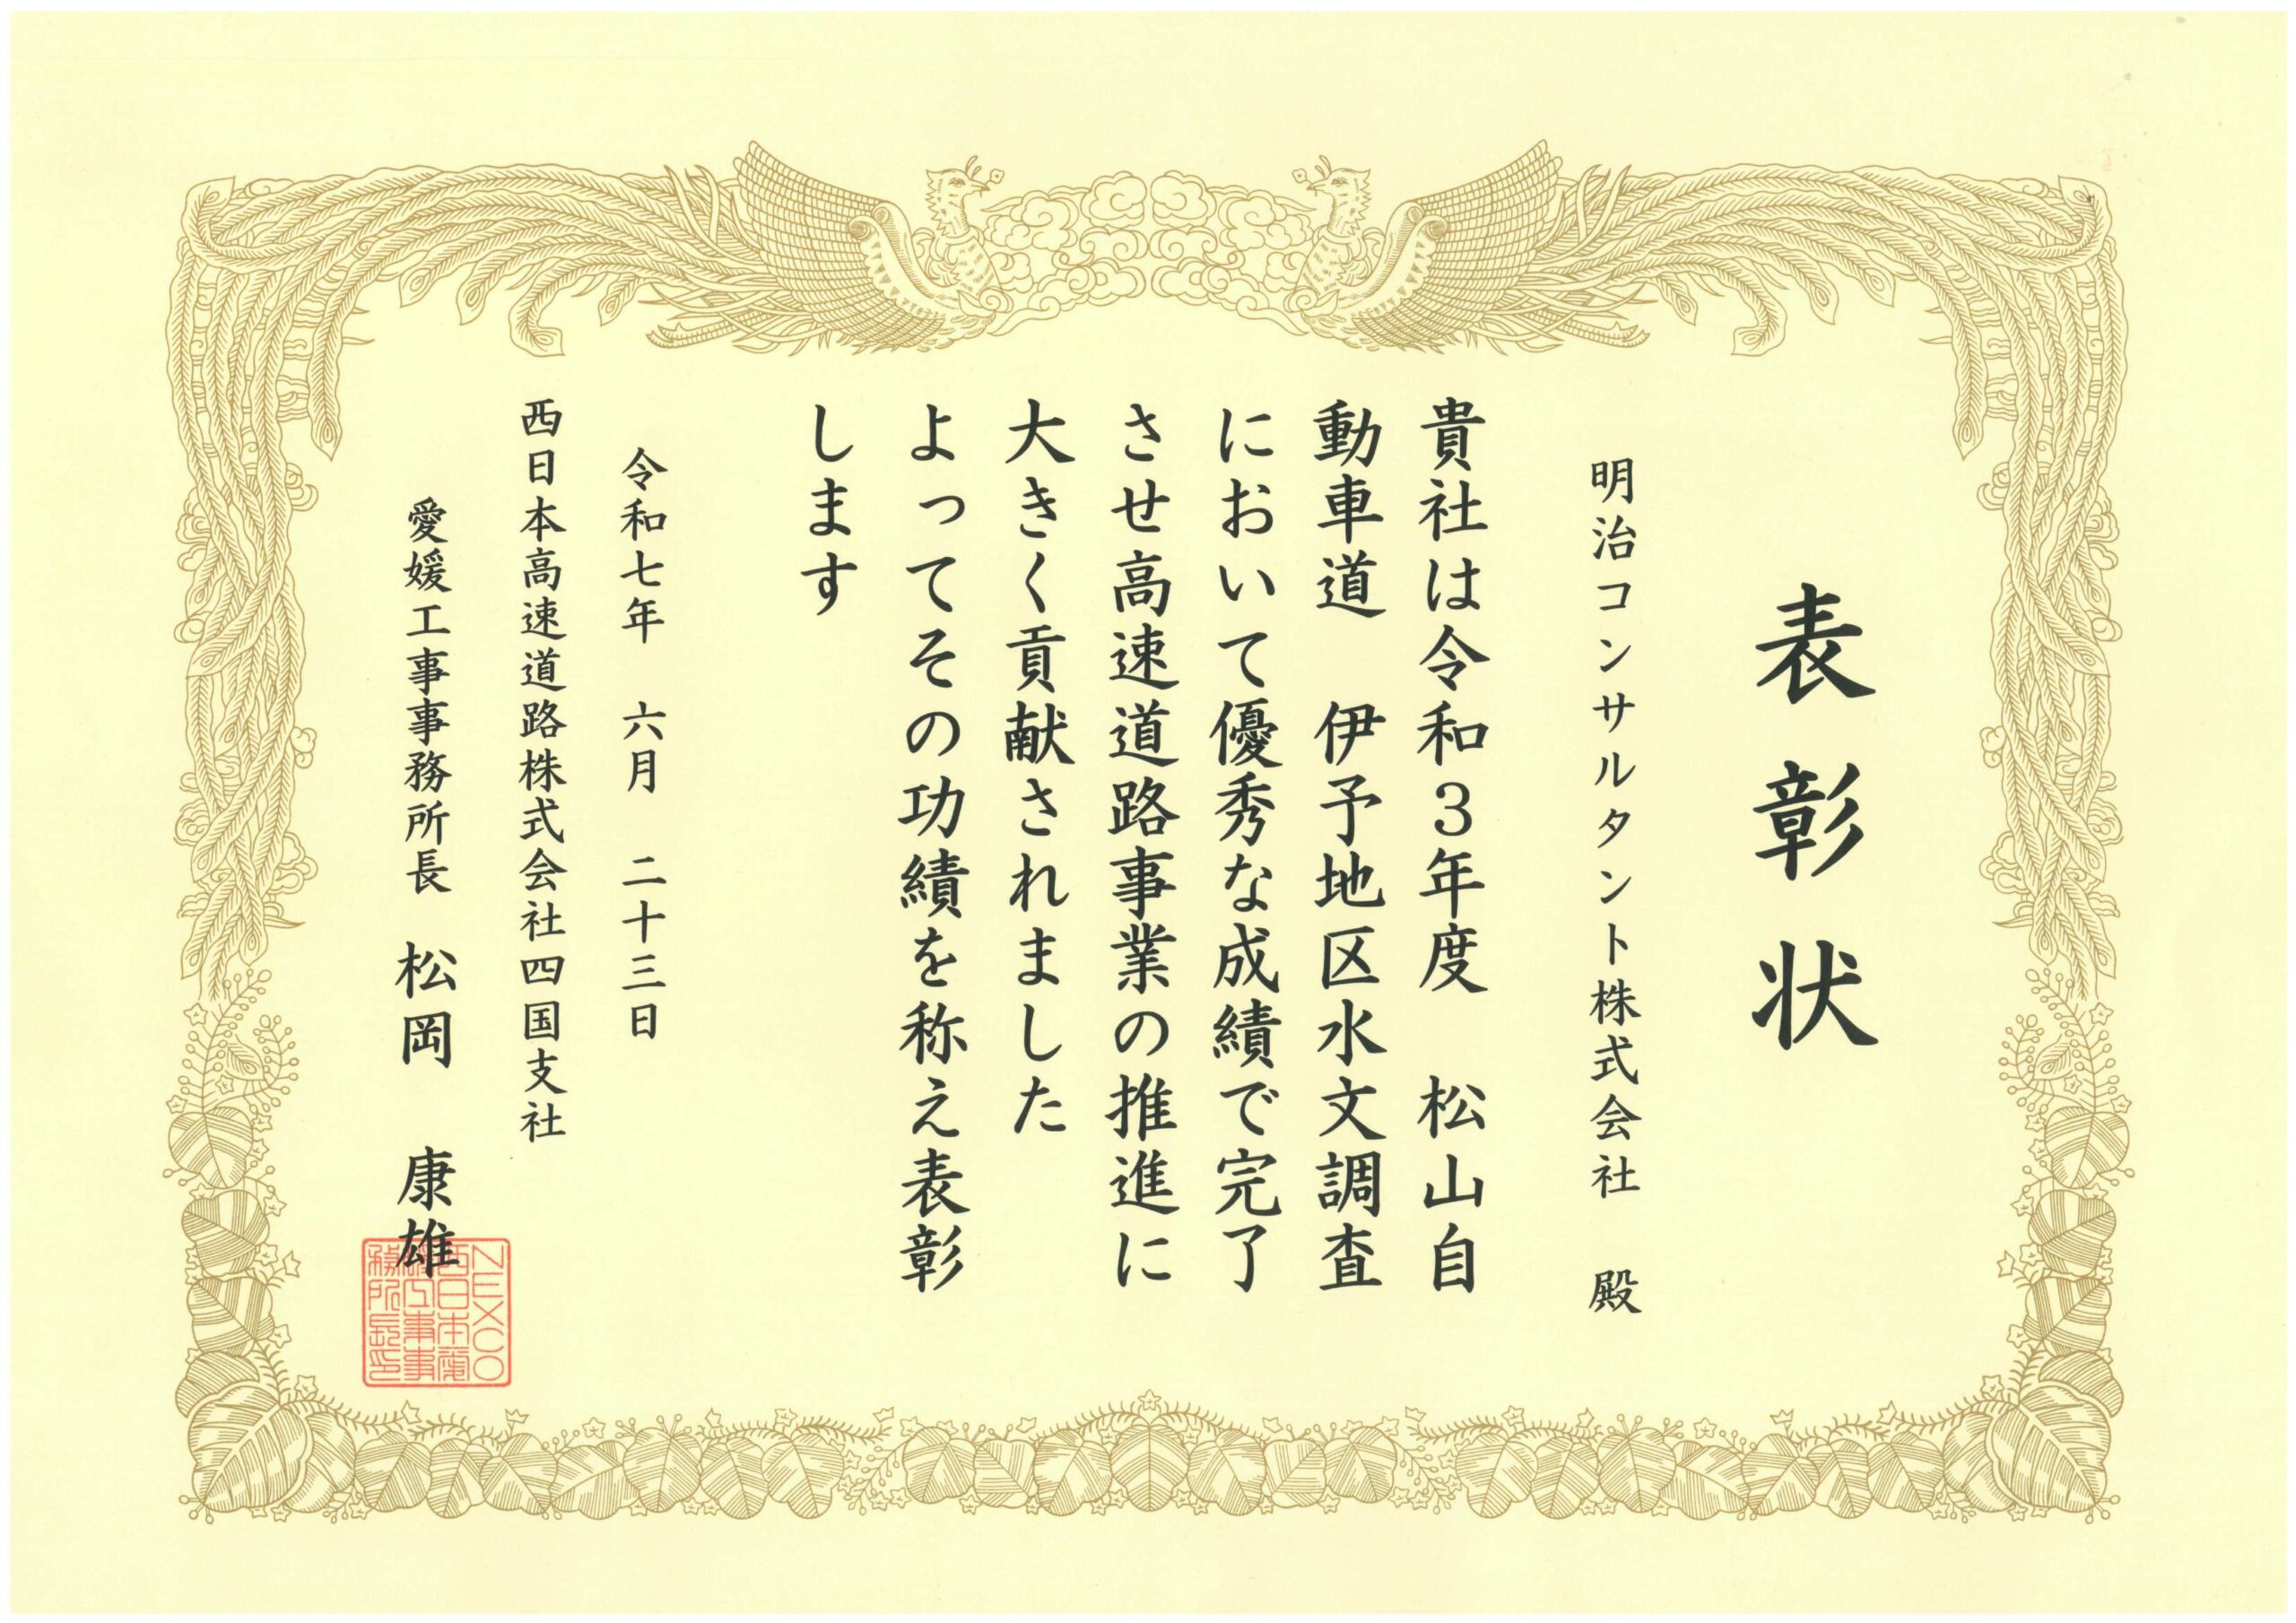 表彰状
明治コンサルタント株式会社　殿
貴社は令和３年度　松山自
動車道　伊予地区水文調査
において優秀な成績で完了
させ高速道路事業の推進に
大きく貢献されました
よってその功績を称え表彰
します
令和七年　六月　二十三日
西日本高速道路株式会社四国支社
愛媛工事事務所長　松岡　康雄
NEXCO
西日本愛
媛工事事
務所長印